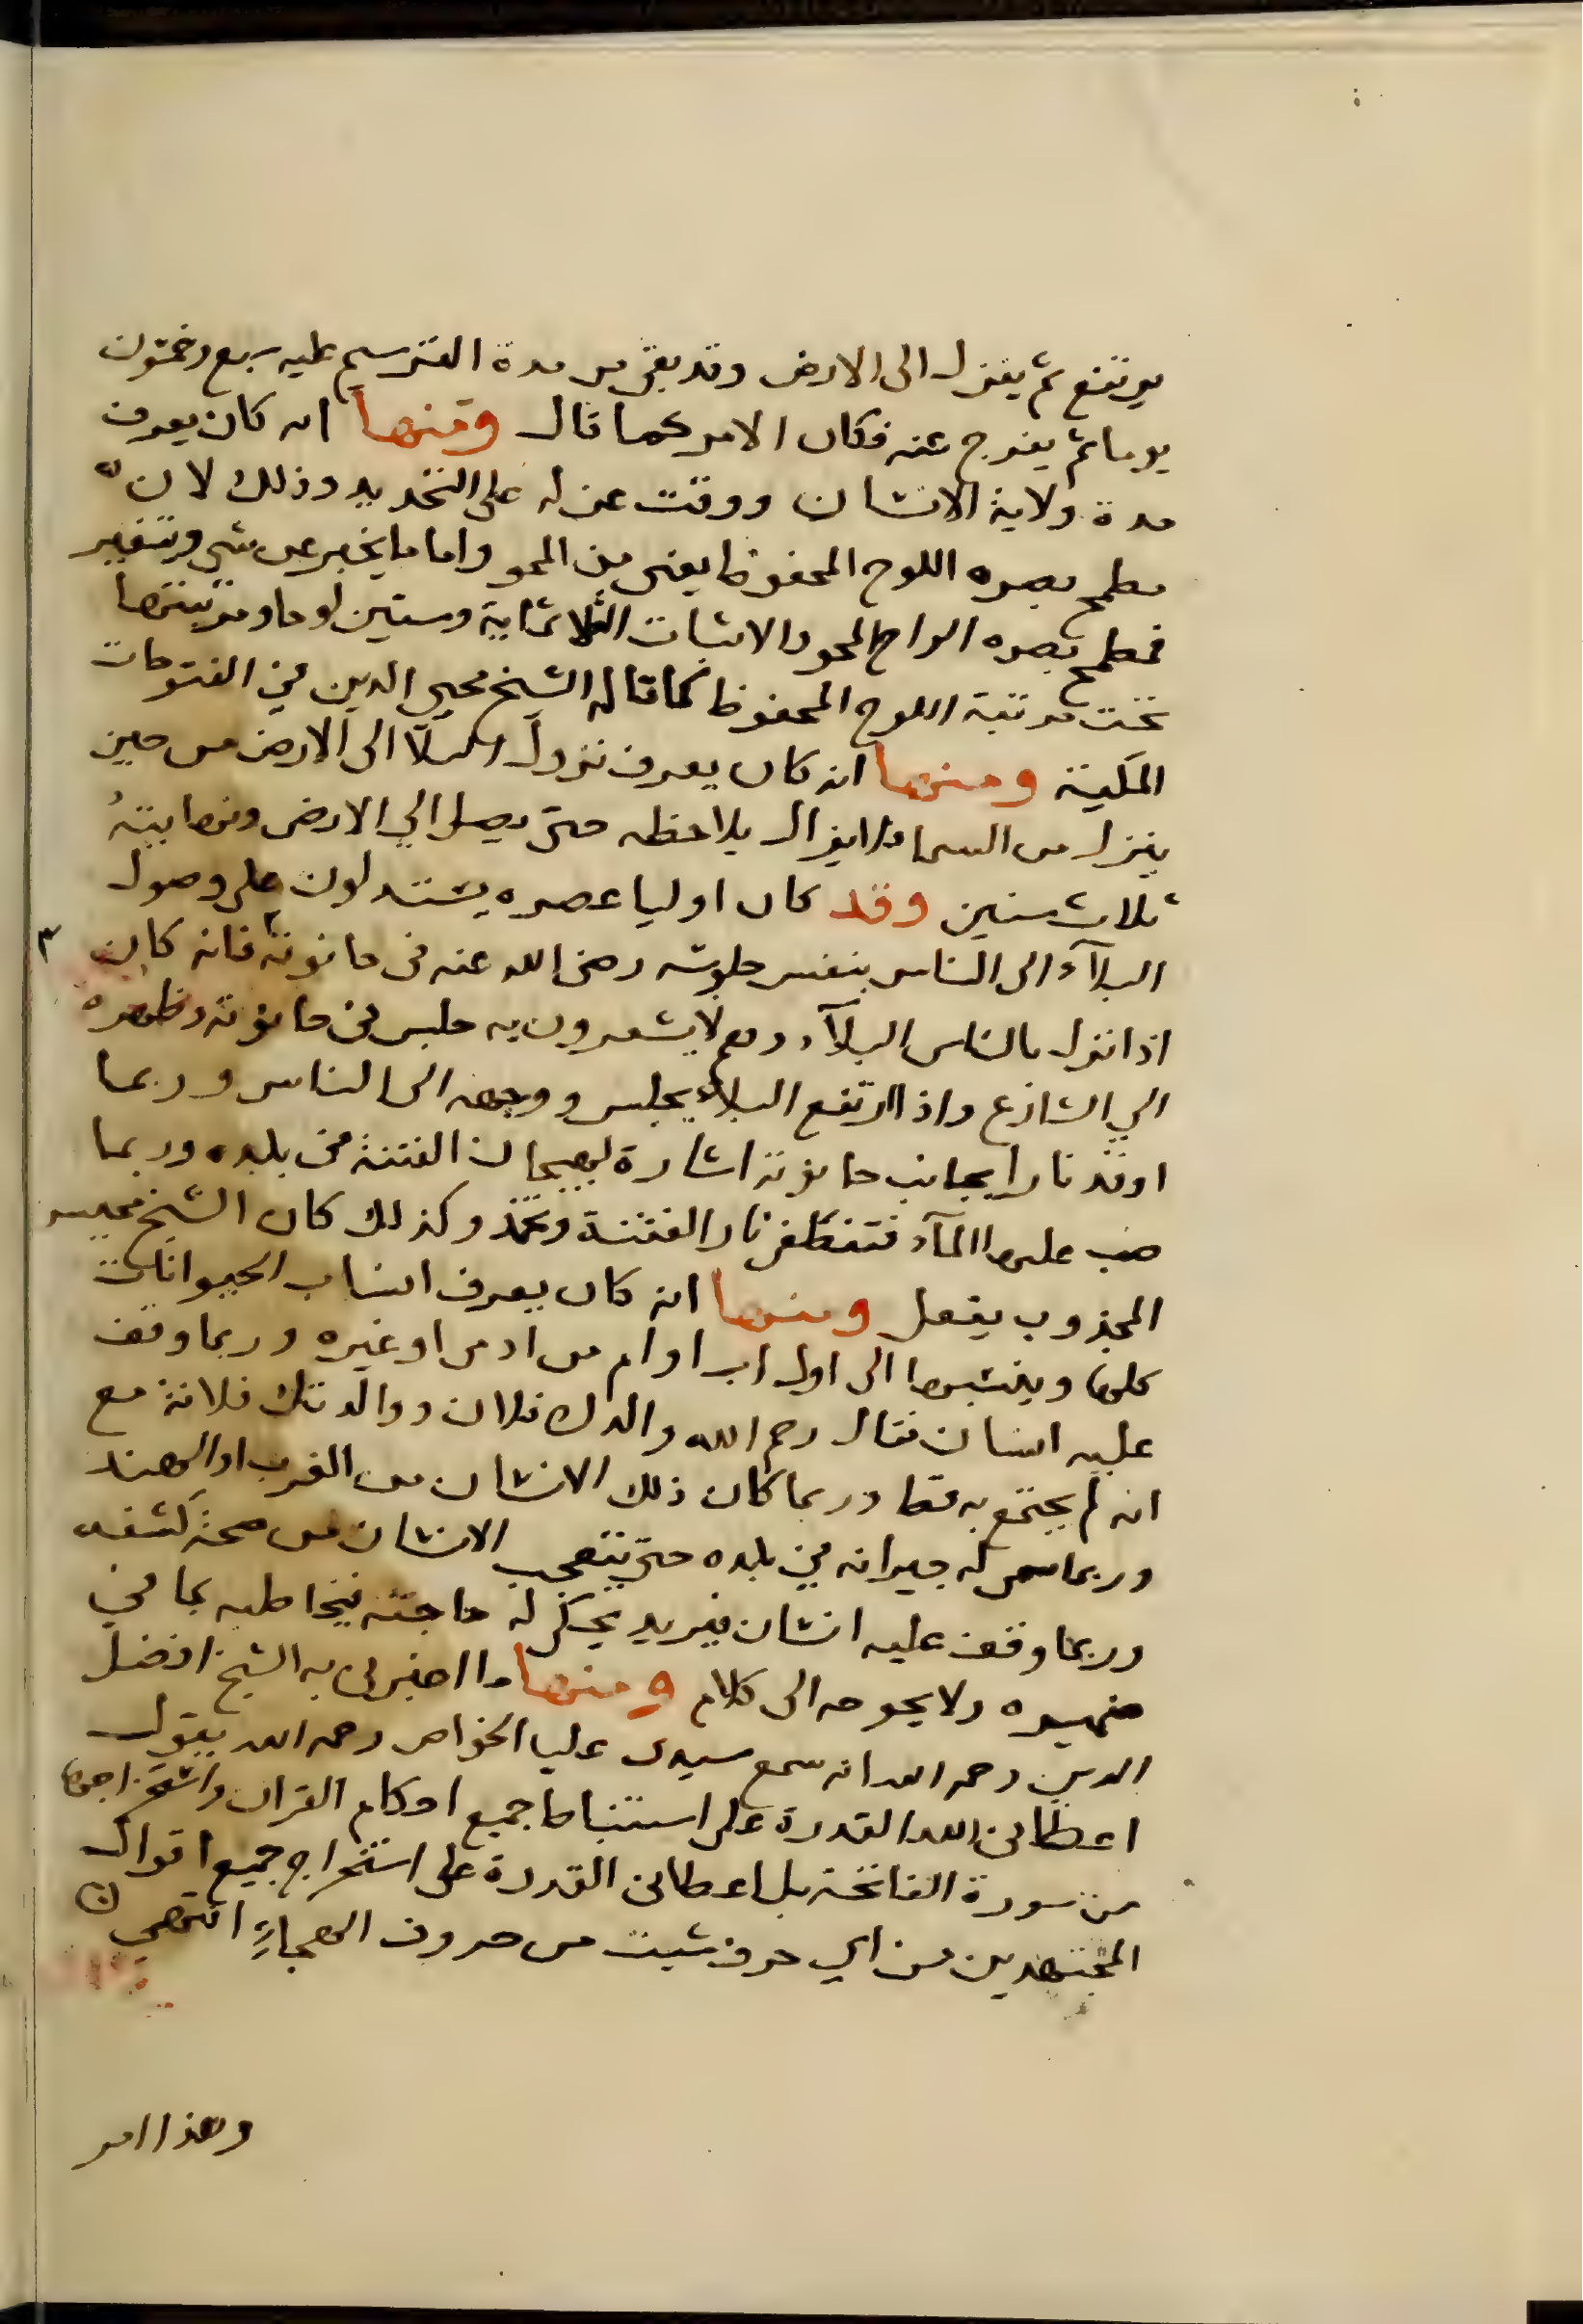 يرتفع ثم ينزل الى الارض وقد بقي من مدة الترسيم عليه سبع وخمسون
يوما ثم يفرج عنه فكان الامر كما قال ومنها انه كان يعرف
مدة ولاية الانسان ووقت عزله على التحديد وذلك لان
مطمح بصره اللوح المحفوظ يعني من المحو واما ما يخبر عن شي ويتغير
فمطمح بصره الواح المحو والاثبات الثلاثماية وستين لوحا ومرتبتها
تحت مرتبة اللوح المحفوظ كما قاله الشيخ محيي الدين في الفتوحات
المكية ومنها انه كان يعرف نزول البلا الى الارض من حين
ينزل من السما فلا يزال يلاحظه حتى يصل الي الارض ونهايته
ثلاث سنين وقد كان اوليا عصره يستدلون على وصول
البلاء الى الناس بنفس جلوسه رضي الله عنه في حانوته فانه كان
اذا نزل بالناس البلاء وهم لا يشعرون به جلس في حانوته وظهره
الي الشارع واذا ارتفع البلاء يجلس ووجهه الى الناس وربما
اوقد نارا بجانب حانوته اشارة لهيجان الفتنة في بلده وربما
صب عليها الماء فتنطفي نار الفتنة وتخمد وكذلك كان الشيخ محيسن
المجذوب يفعل ومنها انه كان يعرف انساب الحيوانات
كلها وينسبها الى اول اب او ام من ادمي او غيره وربما وقف
عليه انسان فقال رحم الله والدك فلان ووالدتك فلانة مع
انه لم يجتمع به قط وربما كان ذلك الانسان من الغرب او الهند
وربما سمى له جيرانه في بلده حتى يتعجب الانسان من صحة كشفه
وربما وقف عليه انسان فيريد يذكر له حاجته فيخاطبه بما في
ضميره ولا يحوجه الى كلام ومنها ما اخبرني به الشيخ افضل
الدين رحمه الله انه سمع سيدي عليا الخواص رحمه الله يقول
اعطاني الله القدرة على استنباط جميع احكام القران واستخراجها
من سورة الفاتحة بل اعطاني القدرة على استخراج جميع اقوال
المجتهدين من اي حرف شيت من حروف الهجاء انتهي
وهذا امر